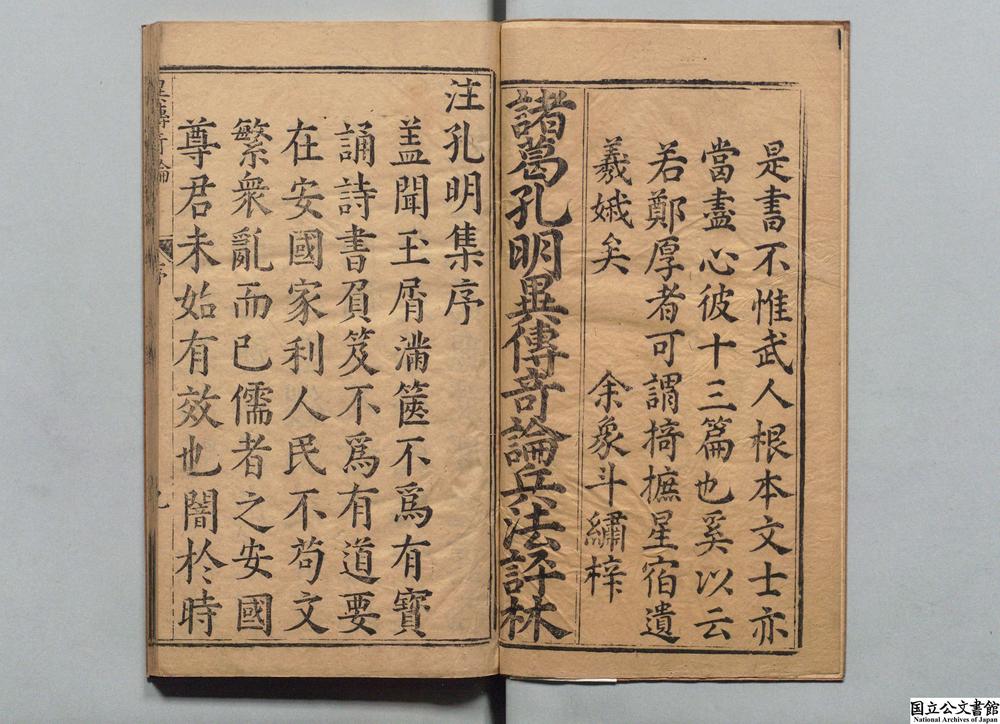 是書不惟武人根本文士亦
當盡心彼十三篇也奚以云
若鄭厚者可謂掎摭星宿遺
羲娥矣 余象斗繡梓
諸葛孔明異傳奇論兵法評林
注孔明集序
盖聞玉屑滿篋不爲有寶
誦詩書負笈不爲有道要
在安國家利人民不苟文
繁衆亂而已儒者之安國
尊君未始有效也闇扵時
異傳奇論
序
国立公文書館
National Archives of Japan